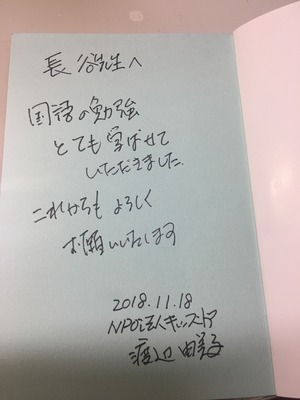 長谷先生へ
国語の勉強
とても学ばせて
いただきました。
これからもよろしく
お願いいたします
2018.11.18
NPO法人キッズドア
渡辺由美子